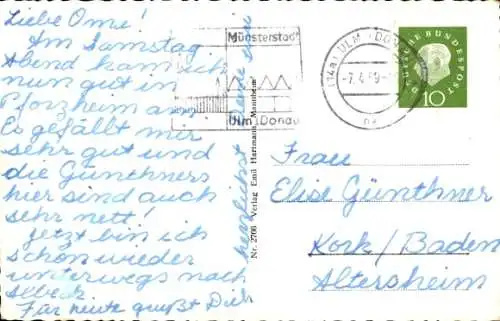 Liebe Ome!
Am Samstag
Abend kam ich
nun gut in
Pforzheim an
Es gefällt mir
sehr gut und
die Günthners
hier sind auch
sehr nett!
Jetzt bin ich
schon wieder
unterwegs nach
Für heute grüßt Dich
herzlichst Deine
Nr. 2706 Verlag Emil Hartmann, Mannheim
Münsterstadt
Ulm Donau
(14a) ULM (DONAU)
-7.4.59-
DEUTSCHE BUNDESPOST
10
Frau
Elise Günthner
Kork/Baden
Altersheim